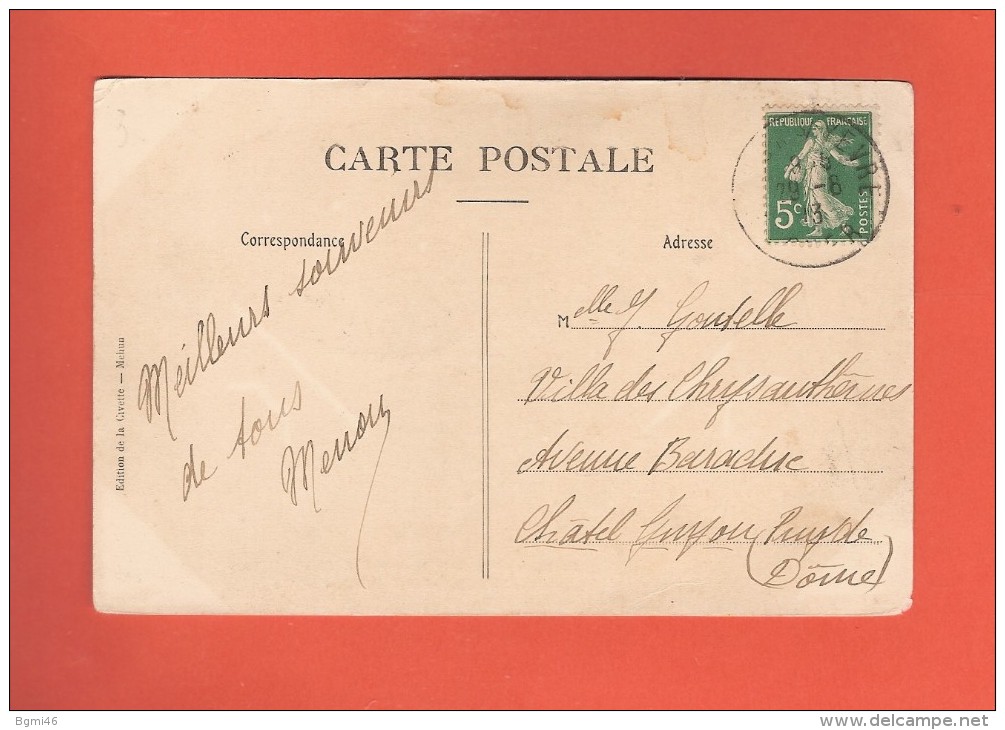 CARTE POSTALE
RÉPUBLIQUE FRANÇAISE
5c
POSTES
29 - 8
13
Correspondance
Adresse
Meilleurs souvenirs
de tous
Menon
Melle J. Goutelle
Villa des Chrysanthèmes
Avenue Baraduc
Châtel Guyon (Puy de
Dôme)
Edition de la Civette — Mehun
Bgmi46
www.delcampe.net